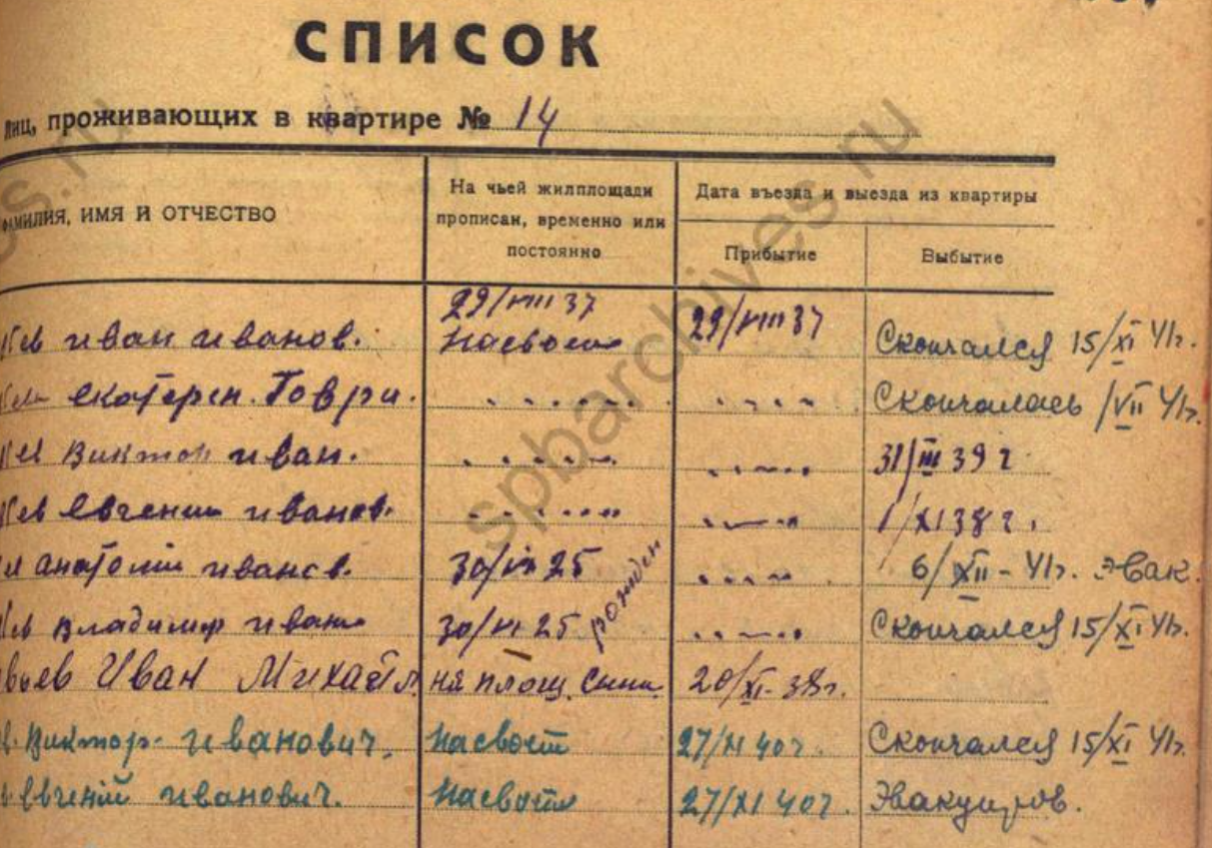 СПИСОК
лиц, проживающих в квартире № 14
ФАМИЛИЯ, ИМЯ И ОТЧЕСТВО
На чьей жилплощади прописан, временно или постоянно
Дата въезда и выезда из квартиры
Прибытие
Выбытие
29/VIII 37
иван иванов. На своей 29/VIII 37 Скончался 15/XI 41г.
екатерин. Гаври. Скончалась /VII 41г.
Виктор иван. 31/III 39 г
Евгении иванов. 1/XI 38 г.
анатолий иванов. 30/ 25 6/XII - 41г. эвак.
рожден
Владимир ивано 30/ 25 Скончался 15/XI 41г.
Иван Михайл. на площ. сына 20/XI-38г.
Виктор иванович. На своей 27/XI 40г. Скончался 15/XI 41г.
Евгений иванович. На своей 27/XI 40г. Эвакуиров.
spbarchives.ru